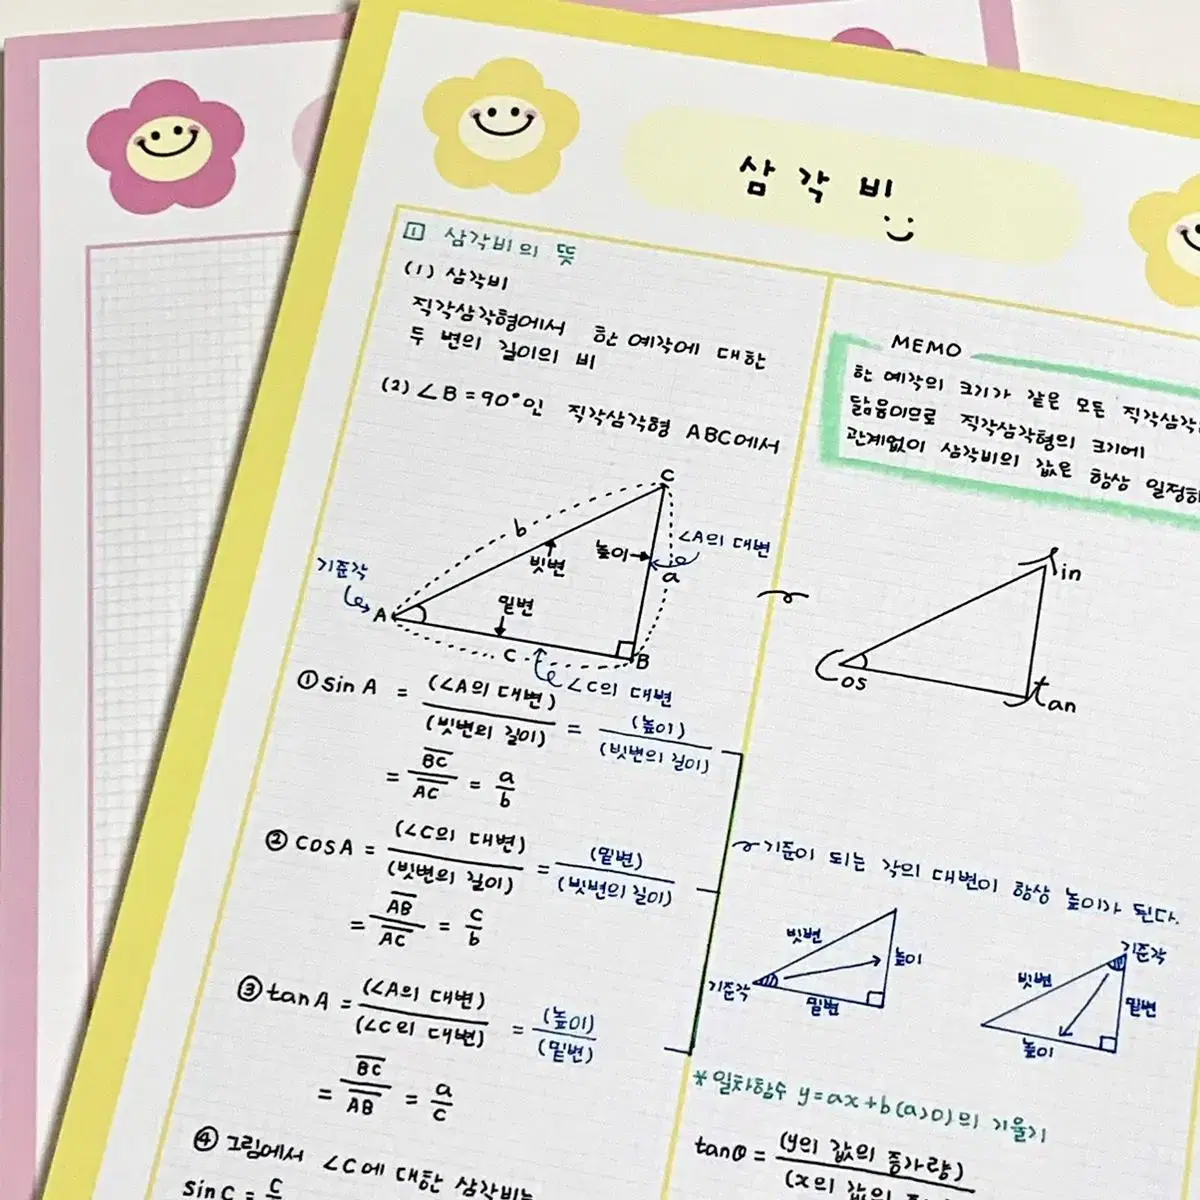 삼각비
1 삼각비의 뜻
(1) 삼각비
직각삼각형에서 한 예각에 대한
두 변의 길이의 비
(2) ∠B = 90°인 직각삼각형 ABC에서
C
b
빗변
높이
∠A의 대변
a
기준각
A
밑변
c
B
∠C의 대변
① sin A = (∠A의 대변) / (빗변의 길이) = (높이) / (빗변의 길이)
= BC / AC = a / b
② cos A = (∠C의 대변) / (빗변의 길이) = (밑변) / (빗변의 길이)
= AB / AC = c / b
③ tan A = (∠A의 대변) / (∠C의 대변) = (높이) / (밑변)
= BC / AB = a / c
④ 그림에서 ∠C에 대한 삼각비는
sin C = c
MEMO
한 예각의 크기가 같은 모든 직각삼각
닮음이므로 직각삼각형의 크기에
관계없이 삼각비의 값은 항상 일정하
sin
cos
tan
기준이 되는 각의 대변이 항상 높이가 된다.
빗변
높이
기준각
밑변
기준각
빗변
밑변
높이
* 일차함수 y=ax+b(a>0)의 기울기
tanθ = (y의 값의 증가량)
(x의 값의